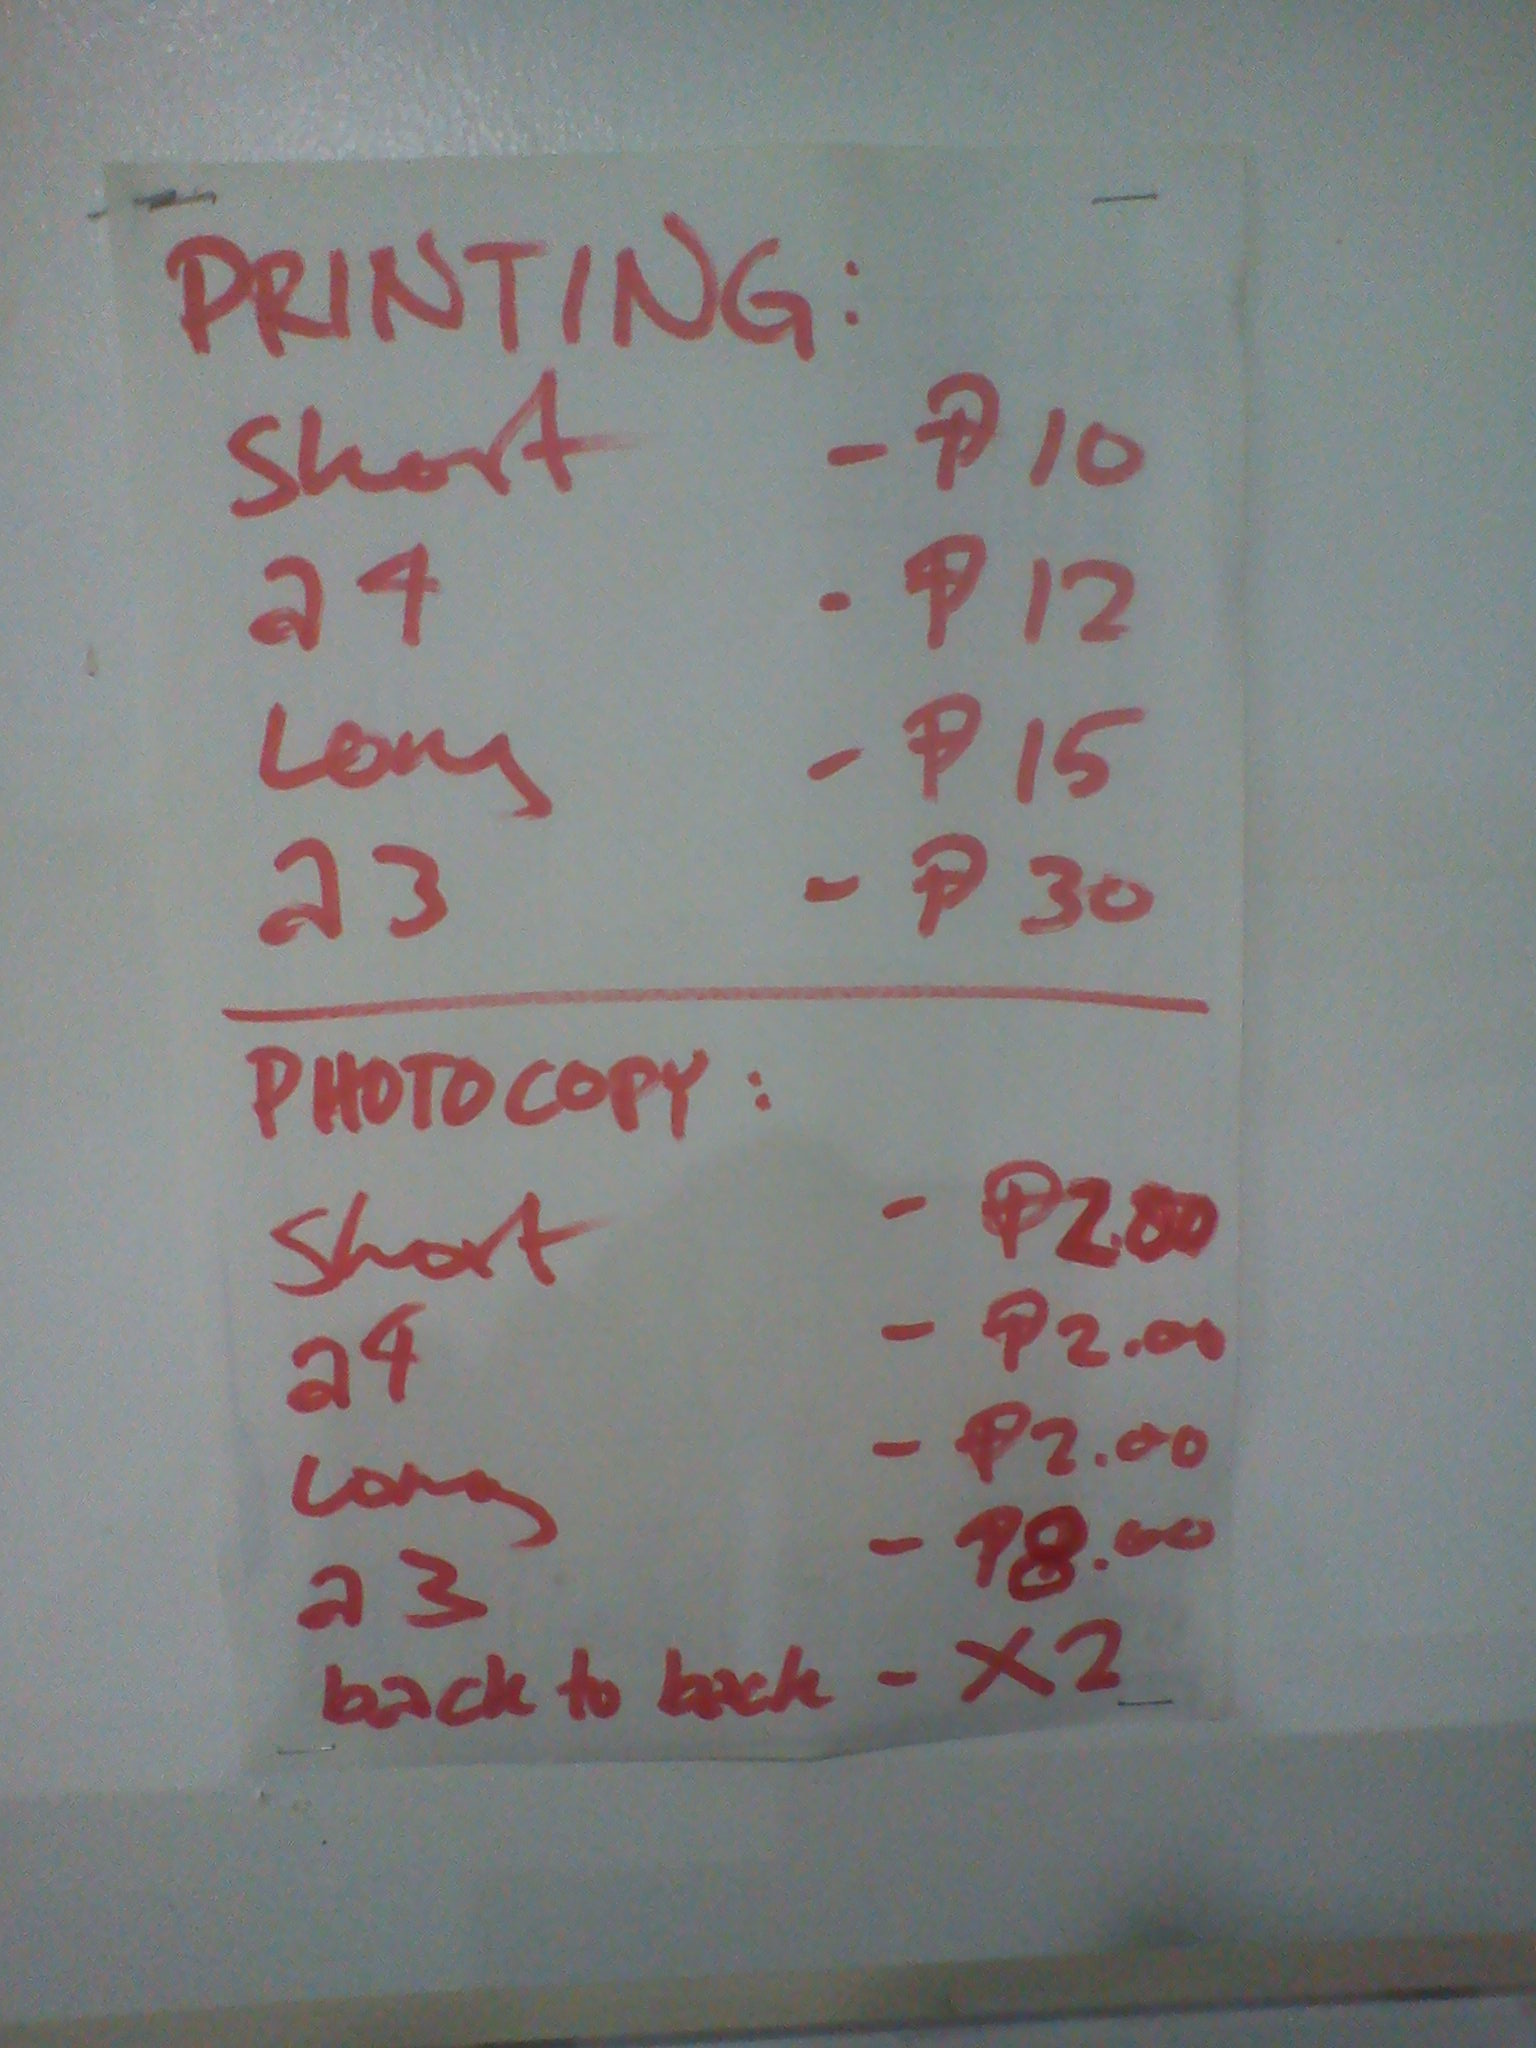 PRINTING:
Short - ₱10
a4 - ₱12
Long - ₱15
a3 - ₱30
PHOTOCOPY:
Short - ₱2.00
a4 - ₱2.00
Long - ₱2.00
a3 - ₱8.00
back to back - X2